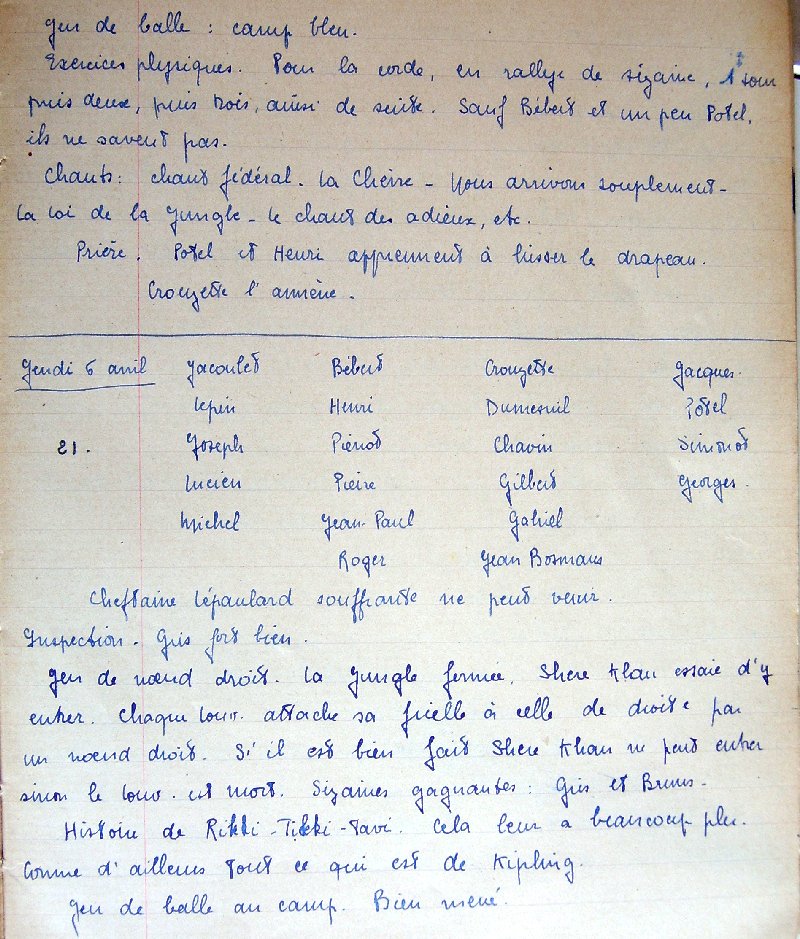 Jeu de balle : camp bleu.
Exercices physiques. Pour la corde, en rallye de sizaine, 1 tour
puis deux, puis trois, ainsi de suite. Sauf Bébert et un peu Potel,
ils ne savent pas.
Chants : chant fédéral - La Chèvre - Nous arrivons souplement -
La loi de la Jungle - Le chant des adieux, etc.
Prière. Potel et Henri apprennent à hisser le drapeau.
Crouzette l'amène.
Jeudi 6 avril Jacoulet Bébert Crouzette Jacques.
Henri Dumesnil Potel
21. Joseph Piérrot Chavin Simonot
Lucien Pierre Gilbert Georges.
Michel Jean-Paul Gabriel
Roger Jean Bosmans
Cheftaine Lépaulard souffrante ne peut venir.
Inspection. Gris fort bien.
Jeu de nœud droit. La Jungle fermée. Shere Khan essaie d'y
entrer. Chaque louv. attache sa ficelle à celle de droite par
un nœud droit. S'il est bien fait Shere Khan ne peut entrer
sinon le louv. est mort. Sizaines gagnantes : Gris et Bruns -
Histoire de Rikki-Tikki-Tavi. Cela leur a beaucoup plu.
Comme d'ailleurs tout ce qui est de Kipling.
Jeu de balle au camp. Bien mené.